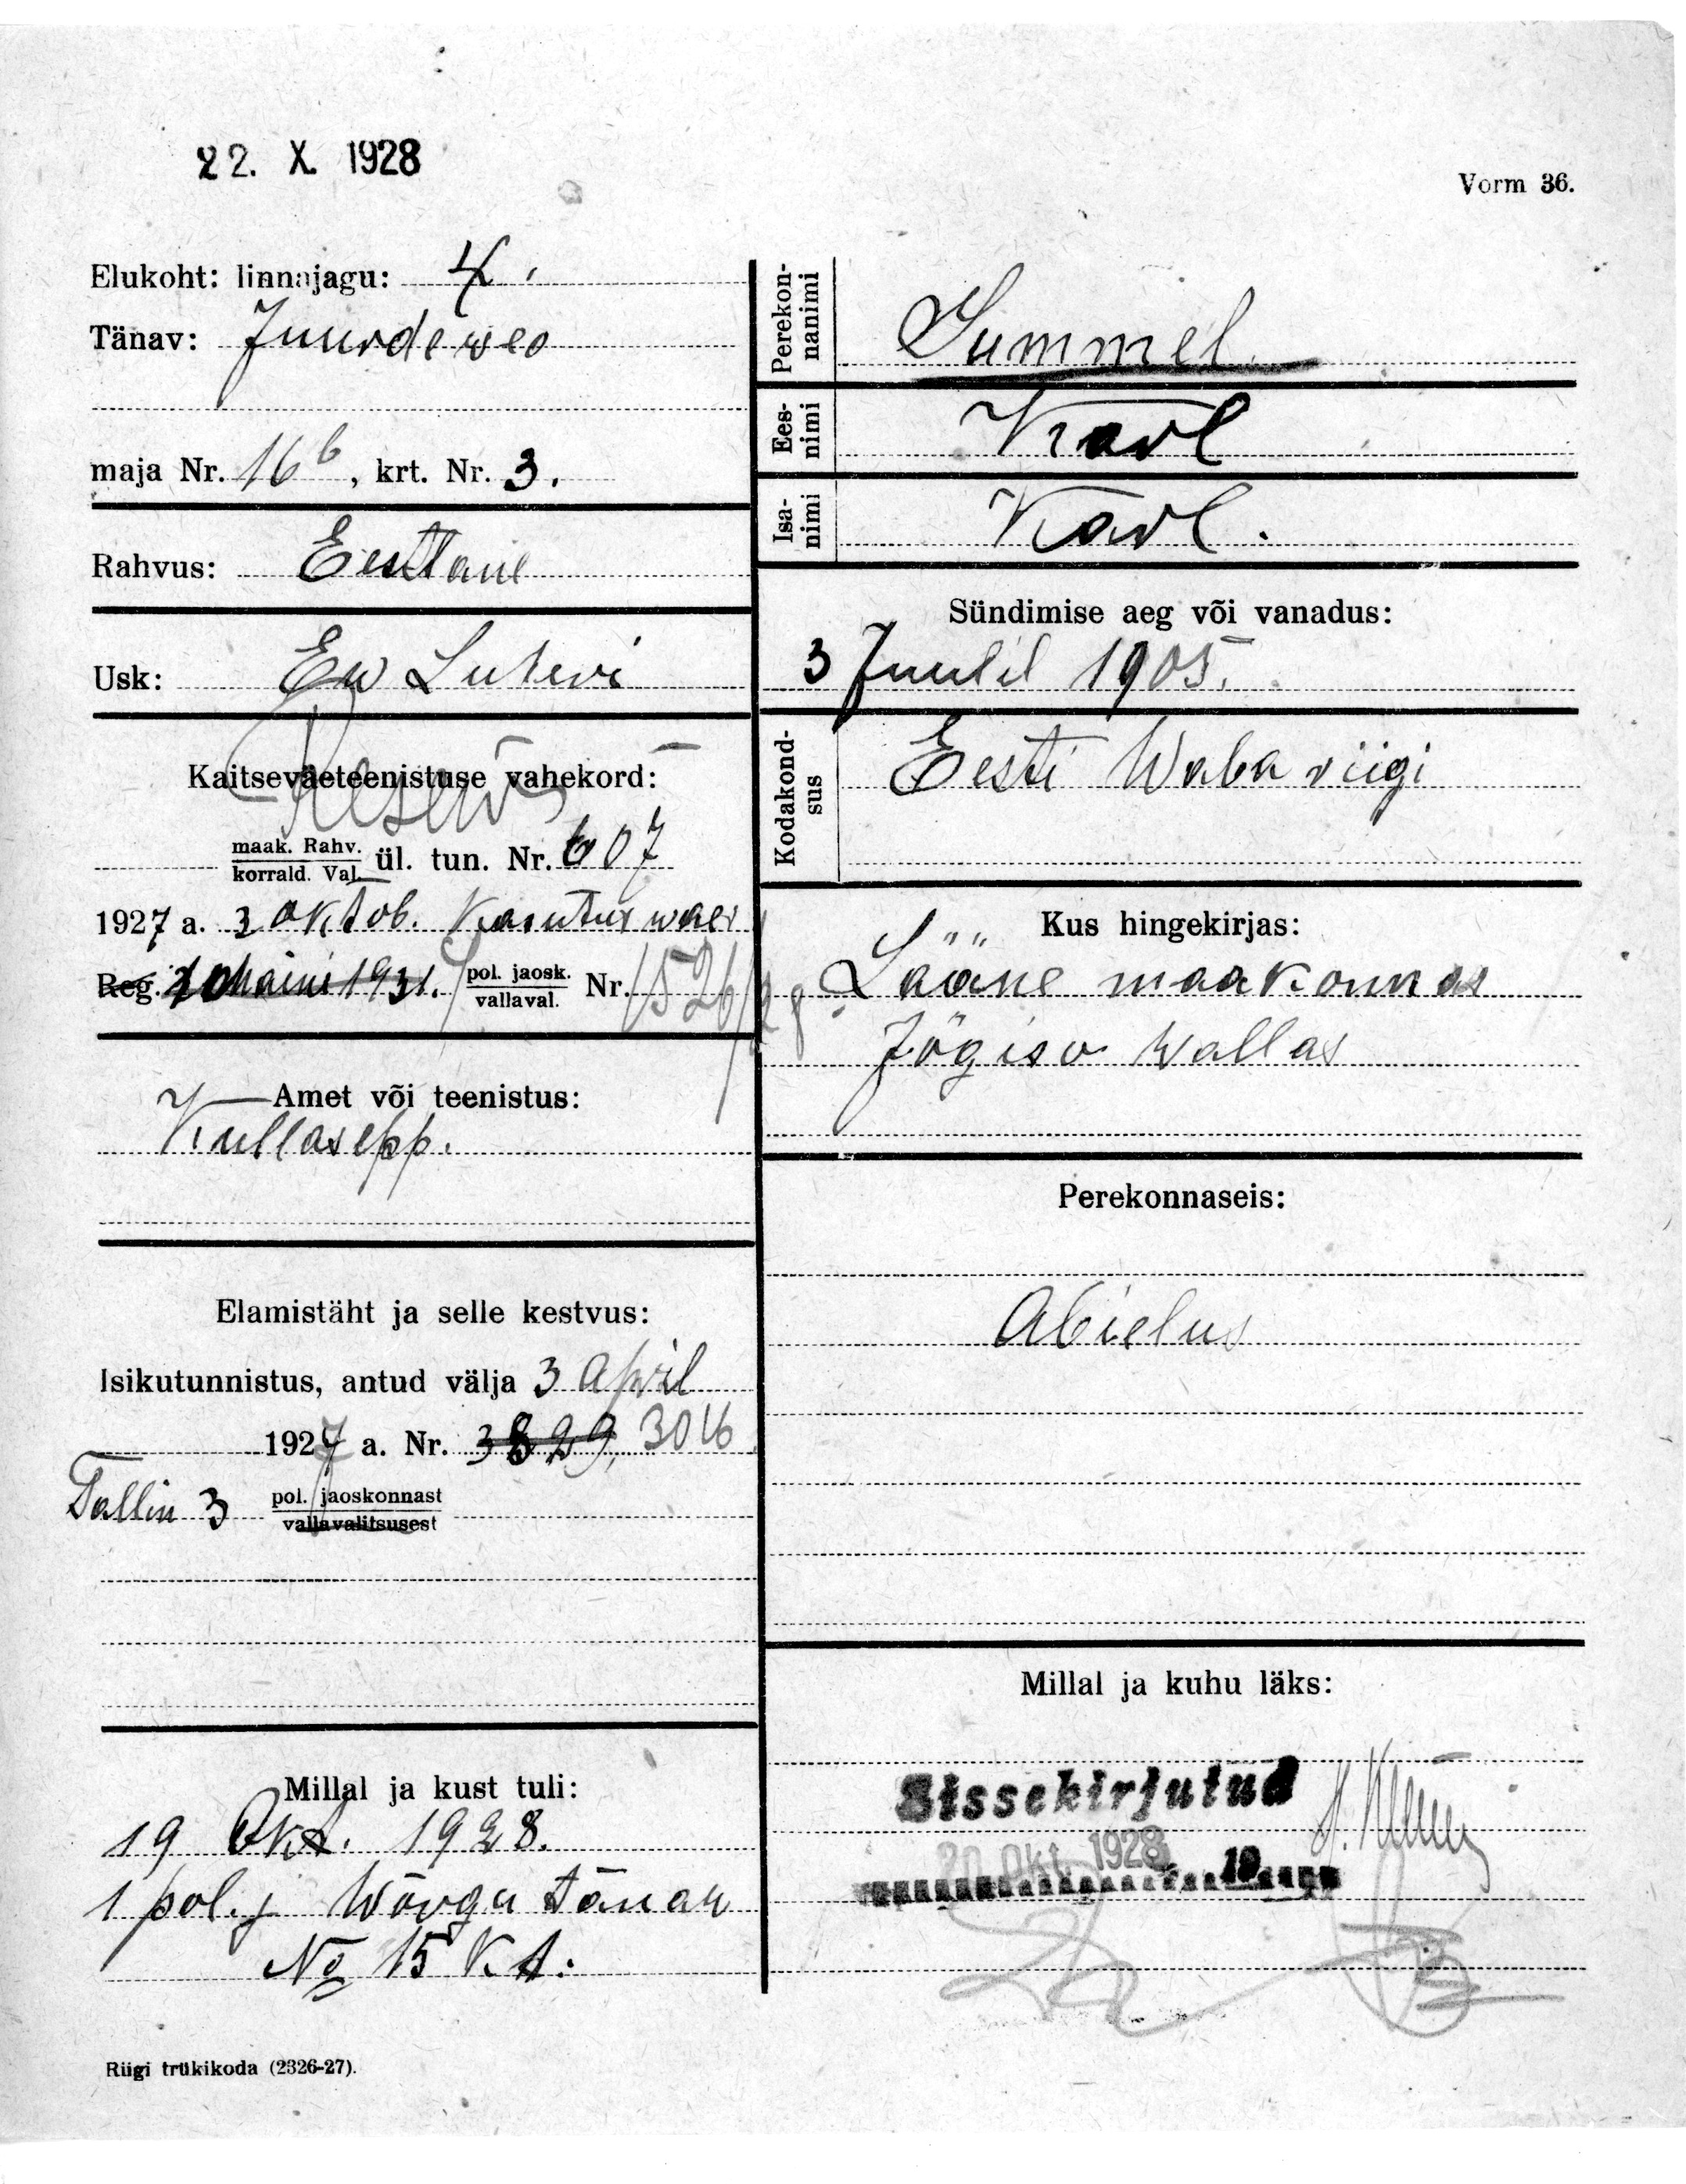 22. X. 1928
Vorm 36.
Elukoht: linnajagu: 4.
Tänav: Juurdeweo
maja Nr. 16 b, krt. Nr. 3.
Rahvus: Eestlane
Usk: Ew Luteri
Kaitseväeteenistuse vahekord:
Reservis
maak. Rahv.
korrald. Val. ül. tun. Nr. 607
1927 a. 3 oktob.
Reg. 1931. pol. jaosk.
vallaval. Nr. 1526/28
Amet või teenistus:
Kullasepp.
Elamistäht ja selle kestvus:
Isikutunnistus, antud välja 3 April
1927 a. Nr. 3829, 3016
Tallin 3 pol. jaoskonnast
vallavalitsusest
Millal ja kust tuli:
19 Okt. 1928.
1 pol. j Wõrgu tänaw
No 15 Kt.
Riigi trükikoda (2326-27).
Perekon-
nanimi
Summel
Ees-
nimi
Karl
Isa-
nimi
Karl.
Sündimise aeg või vanadus:
3 Juulil 1905.
Kodakond-
sus
Eesti Waba riigi
Kus hingekirjas:
Lääne maakonnas
Jõgisu wallas
Perekonnaseis:
Abielus
Millal ja kuhu läks:
Sissekirjutud
20 Okt. 1928 19